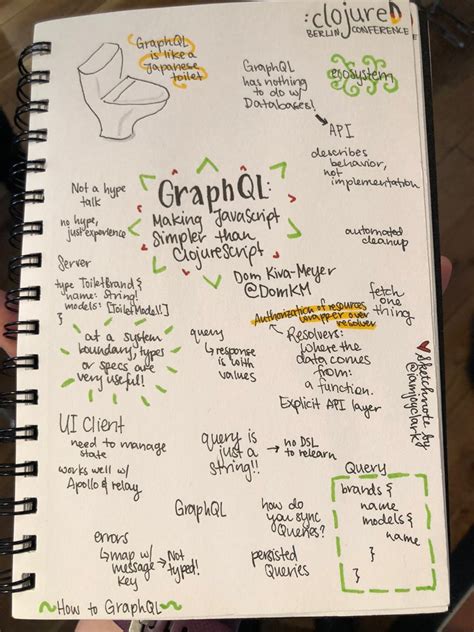 :clojureD
BERLIN CONFERENCE
GraphQL
is like a
Japanese
toilet
GraphQL
has nothing
to do w/
Databases!
ecosystem
API
describes
behavior,
not
implementation
Not a hype
talk
no hype,
just experience
GraphQL:
Making JavaScript
Simpler than
ClojureScript
Dom Kiva-Meyer
@DomKM
automated
cleanup
Server
type ToiletBrand {
name: String!
models: [ToiletModel!]
}
fetch
one
thing
Authorization of resources
wrapper over
resolver
at a system
boundary, types
or specs are
very useful!
query
↳ response
is with
values
Resolvers:
where the
data comes
from:
a function.
Explicit API layer
Sketchnote by
@iamjoyclark
UI Client
need to manage
state
works well w/
Apollo & relay
query is
just a
string!!
→ no DSL
to relearn
Query
brands {
name
models {
name
}
}
GraphQL
how do
you sync
Queries?
errors
↳ map w/
message
key
→ Not
typed!
persisted
Queries
~How to GraphQL~